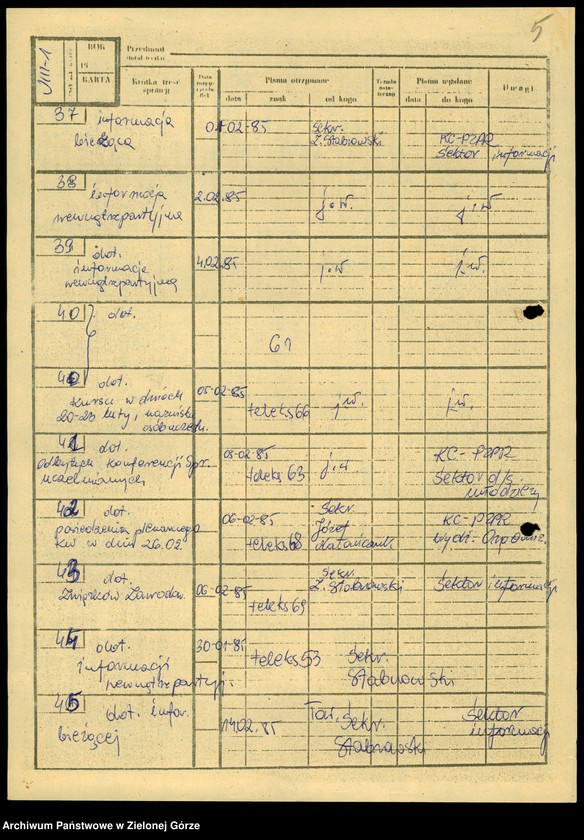 5
VIII-1
ROK
KARTA
Przedmiot
Krótka treść
sprawy
Pisma otrzymane
data
znak
od kogo
Pisma wysłane
data
do kogo
Uwagi
37 informacja
bieżąca
01-02-85
Sekr.
Z. Stabrowski
KC-PZPR
Sektor informacji
38 informacja
wewnątrzpartyjna
2.02.85
j.w.
j.w.
39 dot.
informacja
wewnątrzpartyjna
4.02.85
j.w
j.w.
40 dot.
61
40 dot.
kursu w dniach
20-23 luty,
05-02-85
teleks 66
j.w.
j.w.
41 dot.
Konferencji Spr.
05-02-85
teleks 63
j.w
KC-PZPR
Sektor d/s
młodzieży
42 dot.
posiedzenia plenarnego
KW w dniu 26.02
06-02-85
teleks 68
Sekr.
Józef
KC-PZPR
43 dot.
Związków Zawodow.
06-02-85
teleks 69
Sekr.
Z. Stabrowski
Sektor informacji
44 dot.
informacji
wewnątrzpartyj.
30-01-85
teleks 53
Sekr.
Stabrowski
45 dot. infor.
bieżącej
14.02.85
Tow. Sekr.
Stabrowski
Sektor
informacji
Archiwum Państwowe w Zielonej Górze